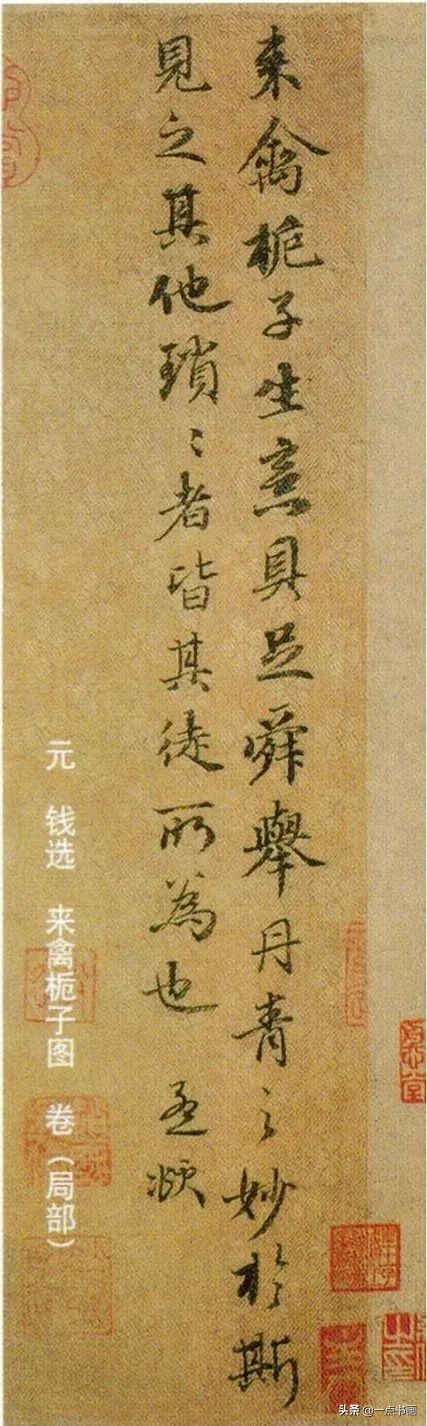 来禽梔子生意具足舜舉丹青之妙於斯
見之其他瑣〻者皆其徒所為也 孟頫
元 钱选 来禽栀子图 卷（局部）
头条 @一点书画